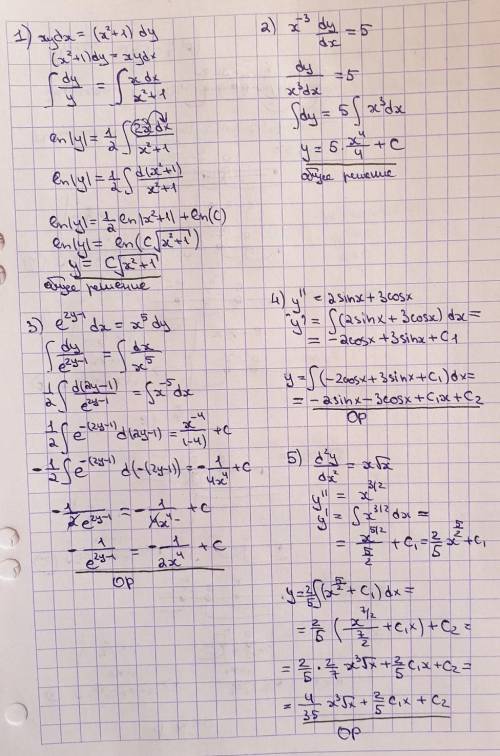 1) xydx = (x²+1) dy
(x²+1)dy = xydx
∫ dy/y = ∫ xdx/(x²+1)
ln|y| = 1/2 ∫ 2xdx/(x²+1)
ln|y| = 1/2 ∫ d(x²+1)/(x²+1)
ln|y| = 1/2 ln|x²+1| + ln(C)
ln|y| = ln(C√(x²+1))
y = C√(x²+1)
общее решение
2) x⁻³ dy/dx = 5
dy/(x³dx) = 5
∫dy = 5∫x³dx
y = 5·x⁴/4 + C
общее решение
3) e^(2y-1) dx = x⁵dy
∫ dy/e^(2y-1) = ∫ dx/x⁵
1/2 ∫ d(2y-1)/e^(2y-1) = ∫x⁻⁵dx
1/2 ∫ e^(-(2y-1)) d(2y-1) = x⁻⁴/(-4) + C
-1/2 ∫ e^(-(2y-1)) d(-(2y-1)) = -1/(4x⁴) + C
-1/(2e^(2y-1)) = -1/(4x⁴) + C
-1/e^(2y-1) = -1/(2x⁴) + C
ОР
4) y'' = 2sinx + 3cosx
y' = ∫(2sinx + 3cosx) dx =
= -2cosx + 3sinx + C₁
y = ∫(-2cosx + 3sinx + C₁)dx =
= -2sinx - 3cosx + C₁x + C₂
ОР
5) d²y/dx² = x√x
y'' = x^(3/2)
y' = ∫ x^(3/2) dx =
= x^(5/2)/(5/2) + C₁ = 2/5 x^(5/2) + C₁
y = 2/5 ∫(x^(5/2) + C₁) dx =
= 2/5 (x^(7/2)/(7/2) + C₁x) + C₂ =
= 2/5 · 2/7 x³√x + 2/5 C₁x + C₂ =
= 4/35 x³√x + 2/5 C₁x + C₂
ОР